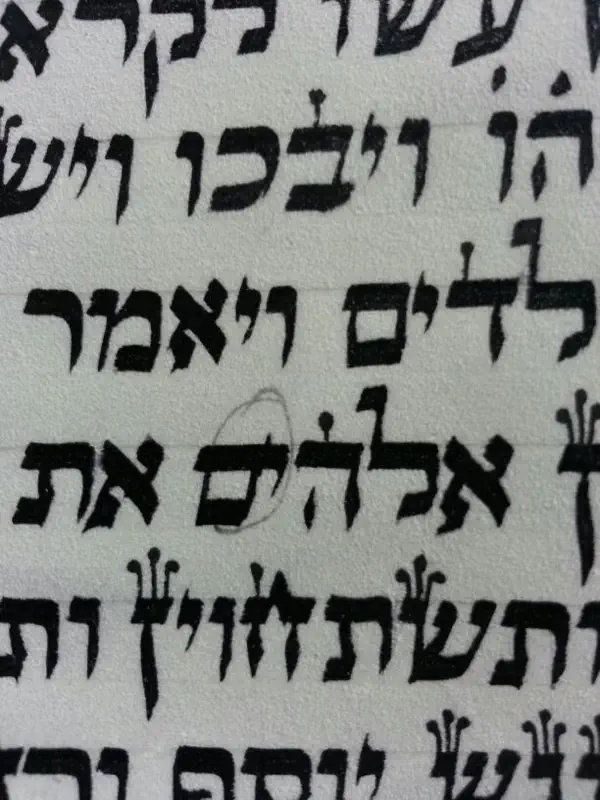 עשו לקרא
הׄוׄ ויבכו ויש
לדים ויאמר
ן אלהים את
ותשתחוין ות
נגש יוסף ור